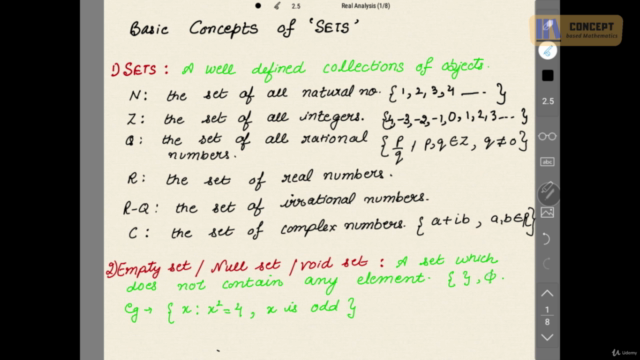 2.5 Real Analysis (1/8)
CONCEPT
based Mathematics
Basic Concepts of 'SETS'
1) SETS : A well defined collections of objects.
N : the set of all natural no. {1, 2, 3, 4 ---- }
Z : the set of all integers. {4, -3, -2, -1, 0, 1, 2, 3 --- }
Q : the set of all rational numbers. {p/q / p, q ∈ Z, q ≠ 0}
R : the set of real numbers.
R-Q : the set of irrational numbers.
C : the set of complex numbers. { a + ib , a, b ∈ R}
2) Empty set / Null set / void set : A set which
does not contain any element. { }, ϕ.
eg → { x : x² = 4, x is odd }
2.5
abc
1
8
Udemy